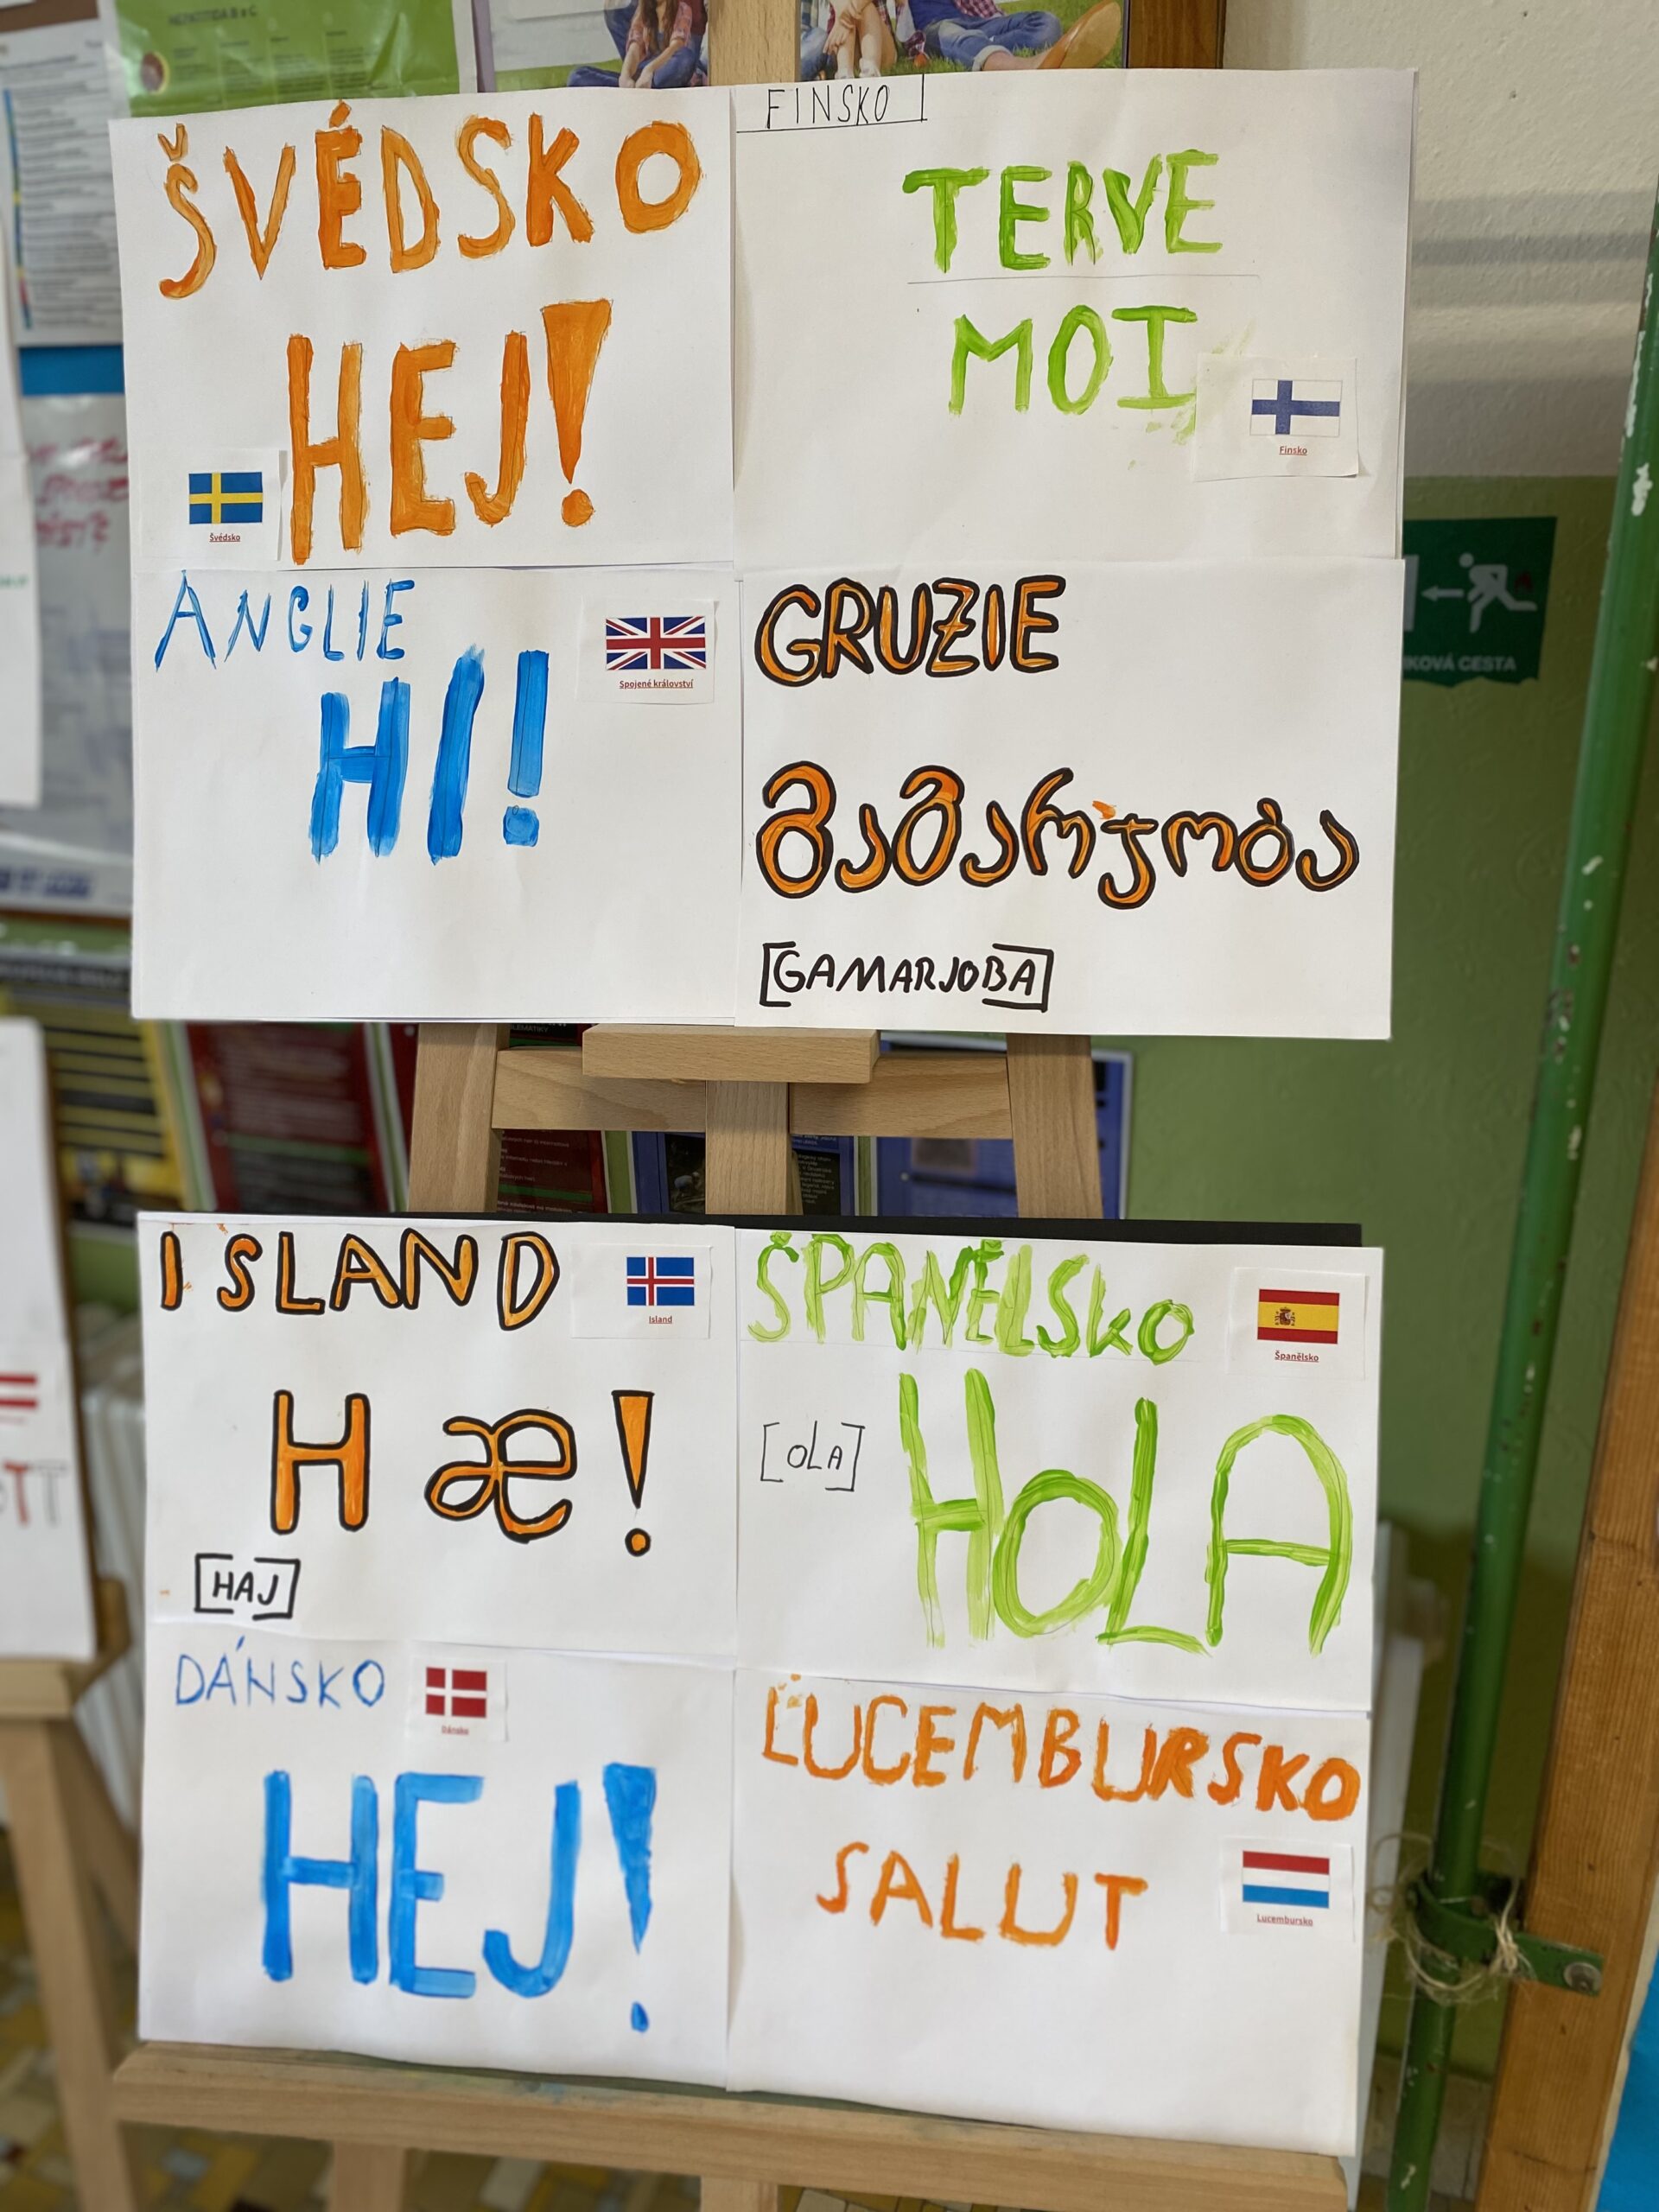 HEPATITIDA B a C
ŠVÉDSKO
HEJ!
Švédsko
FINSKO
TERVE
MOI
Finsko
ANGLIE
HI!
Spojené království
GRUZIE
გამარჯობა
[GAMARJOBA]
NIKOVÁ CESTA
ISLAND
Island
Hæ!
[HAJ]
ŠPANĚLSKO
Španělsko
[OLA]
HOLA
DÁNSKO
Dánsko
HEJ!
LUCEMBURSKO
SALUT
Lucembursko